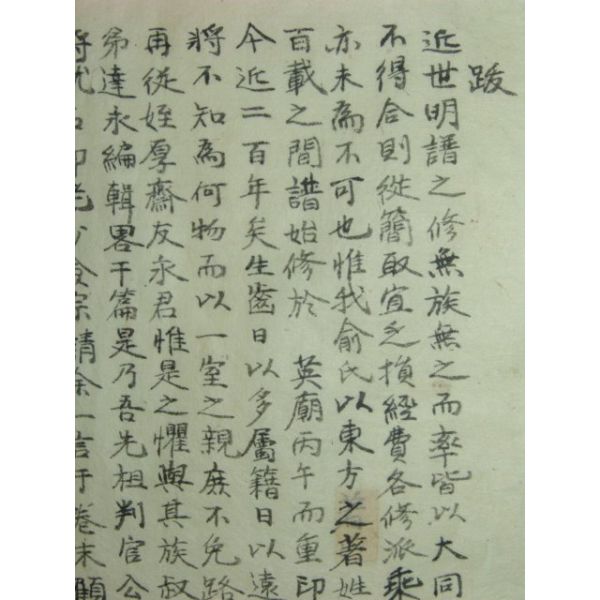 跋
近世明譜之修無族無之而率皆以大同
不得合則從簡取宜之損經費各修派乘
亦未為不可也惟我俞氏以東方之著姓
百載之間譜始修於 英廟丙午而重印
今近二百年矣生齒日以多屬籍日以遠
將不知為何物而以一室之親庶不免路
再從姪厚齋友永君惟是之懼與其族叔
弟達永編輯畧干篇是乃吾先祖判官公
宗請余一言于卷末願